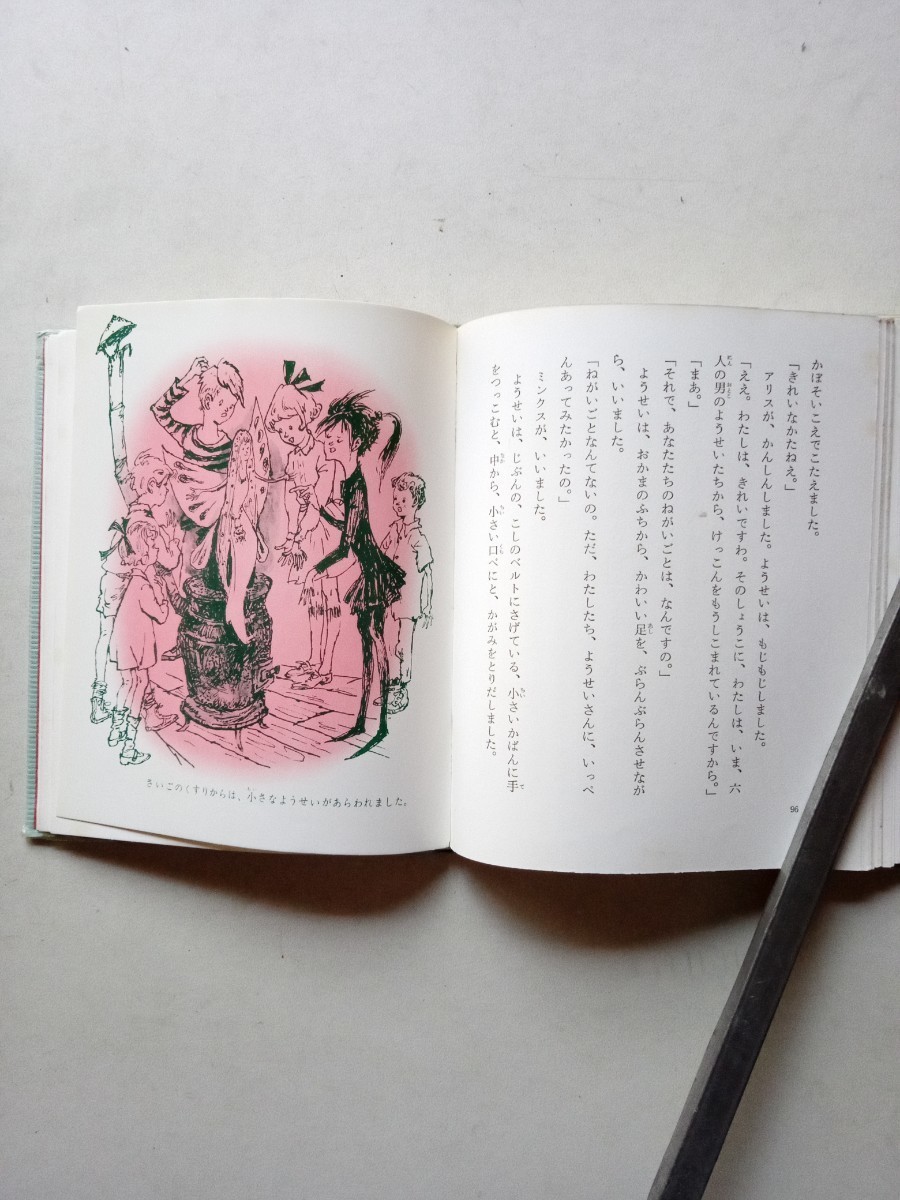 かぼそいこえでこたえました。
「きれいなかたねえ。」
アリスが、かんしんしました。ようせいは、もじもじしました。
「ええ。わたしは、きれいですわ。そのしょうこに、わたしは、いま、六
人の男のようせいたちから、けっこんをもうしこまれているんですから。」
「まあ。」
「それで、あなたたちのねがいごとは、なんですの。」
ようせいは、おかまのふちから、かわいい足を、ぶらんぶらんさせなが
ら、いいました。
「ねがいごとなんてないの。ただ、わたしたち、ようせいさんに、いっぺ
んあってみたかったの。」
ミンクスが、いいました。
ようせいは、じぶんの、こしのベルトにさげている、小さいかばんに手
をつっこむと、中から、小さい口べにと、かがみをとりだしました。
96
さいごのくすりからは、小さなようせいがあらわれました。